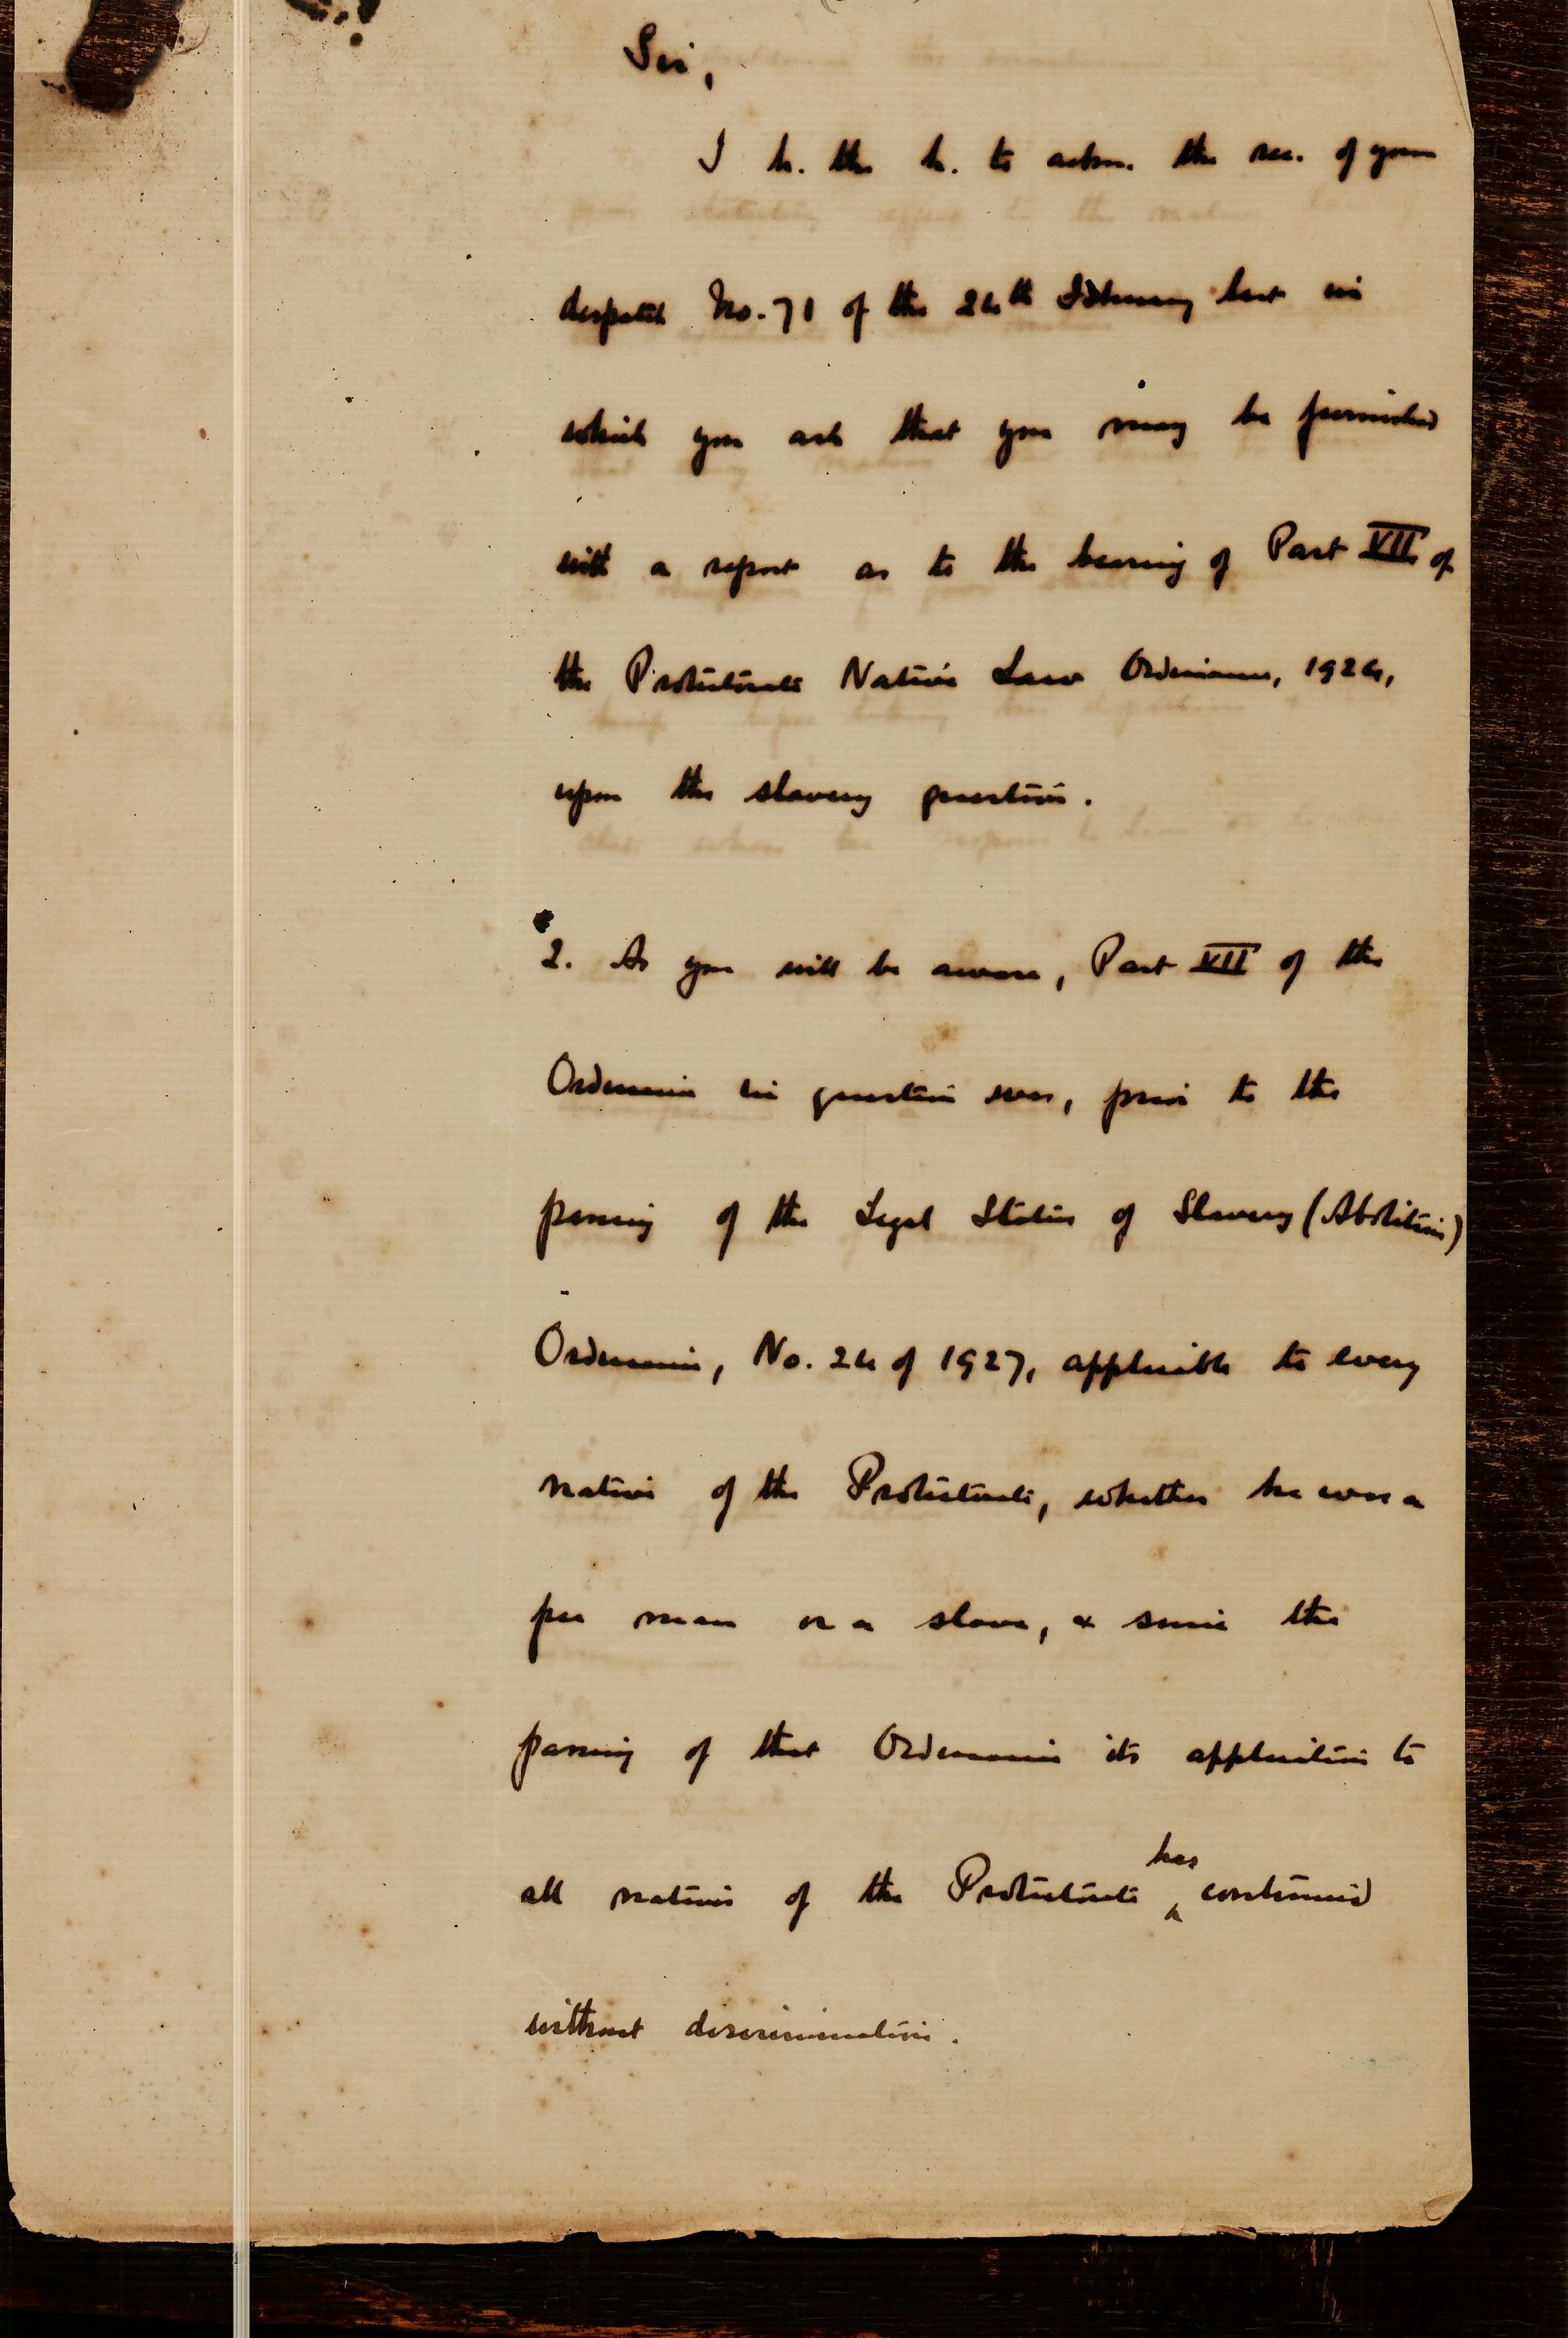 Sir,
I h. the h. to ackn. the rec. of your
despatch No. 71 of the 24th February last in
which you ask that you may be furnished
with a report as to the bearing of Part VII of
the Protectorate Native Law Ordinance, 1924,
upon the slavery question.
2. As you will be aware, Part VII of the
Ordinance in question was, prior to the
passing of the Legal Status of Slavery (Abolition)
Ordinance, No. 24 of 1927, applicable to every
native of the Protectorate, whether he was a
free man or a slave, & since the
passing of that Ordinance its application to
all natives of the Protectorate has continued
without discrimination.